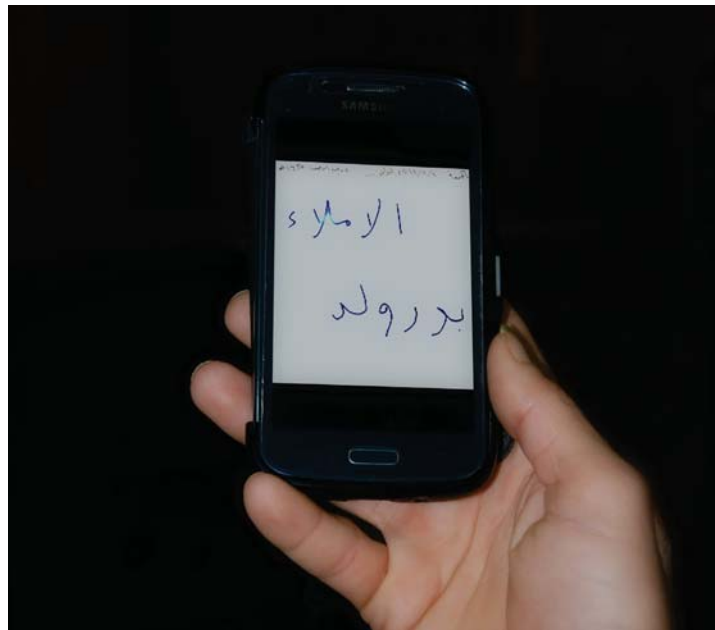 SAMSUNG
الاملاء
بدر ولد